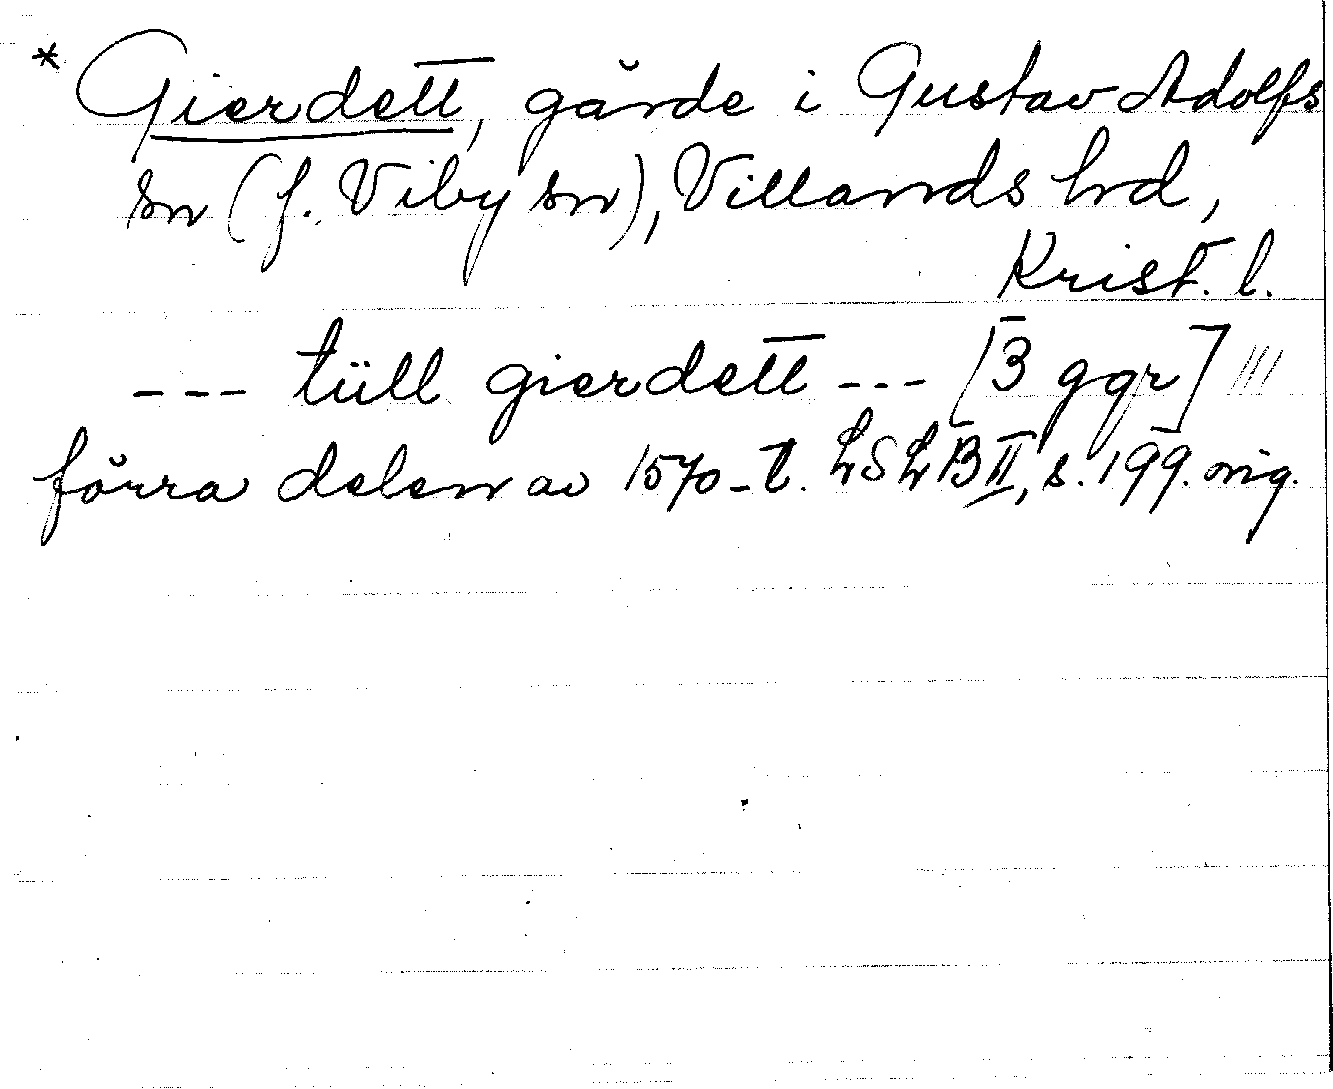 * Gierdett, gärde i Gustav Adolfs
sn (f. Viby sn), Villands hd,
Krist. l.
--- tüll gierdett --- [3 ggr] ///
förra delen av 1570-t. LSLB II, s. 199. orig.